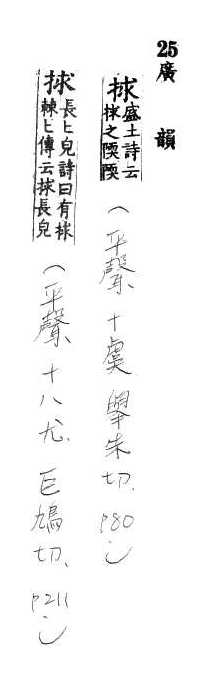 25廣韻
捄盛土詩云
捄之陾陾
(平聲 十虞 舉朱切. p80)
捄長ヒ皃詩曰有捄
棘ヒ傳云捄長皃
(平聲 十八尤. 巨鳩切. p211)